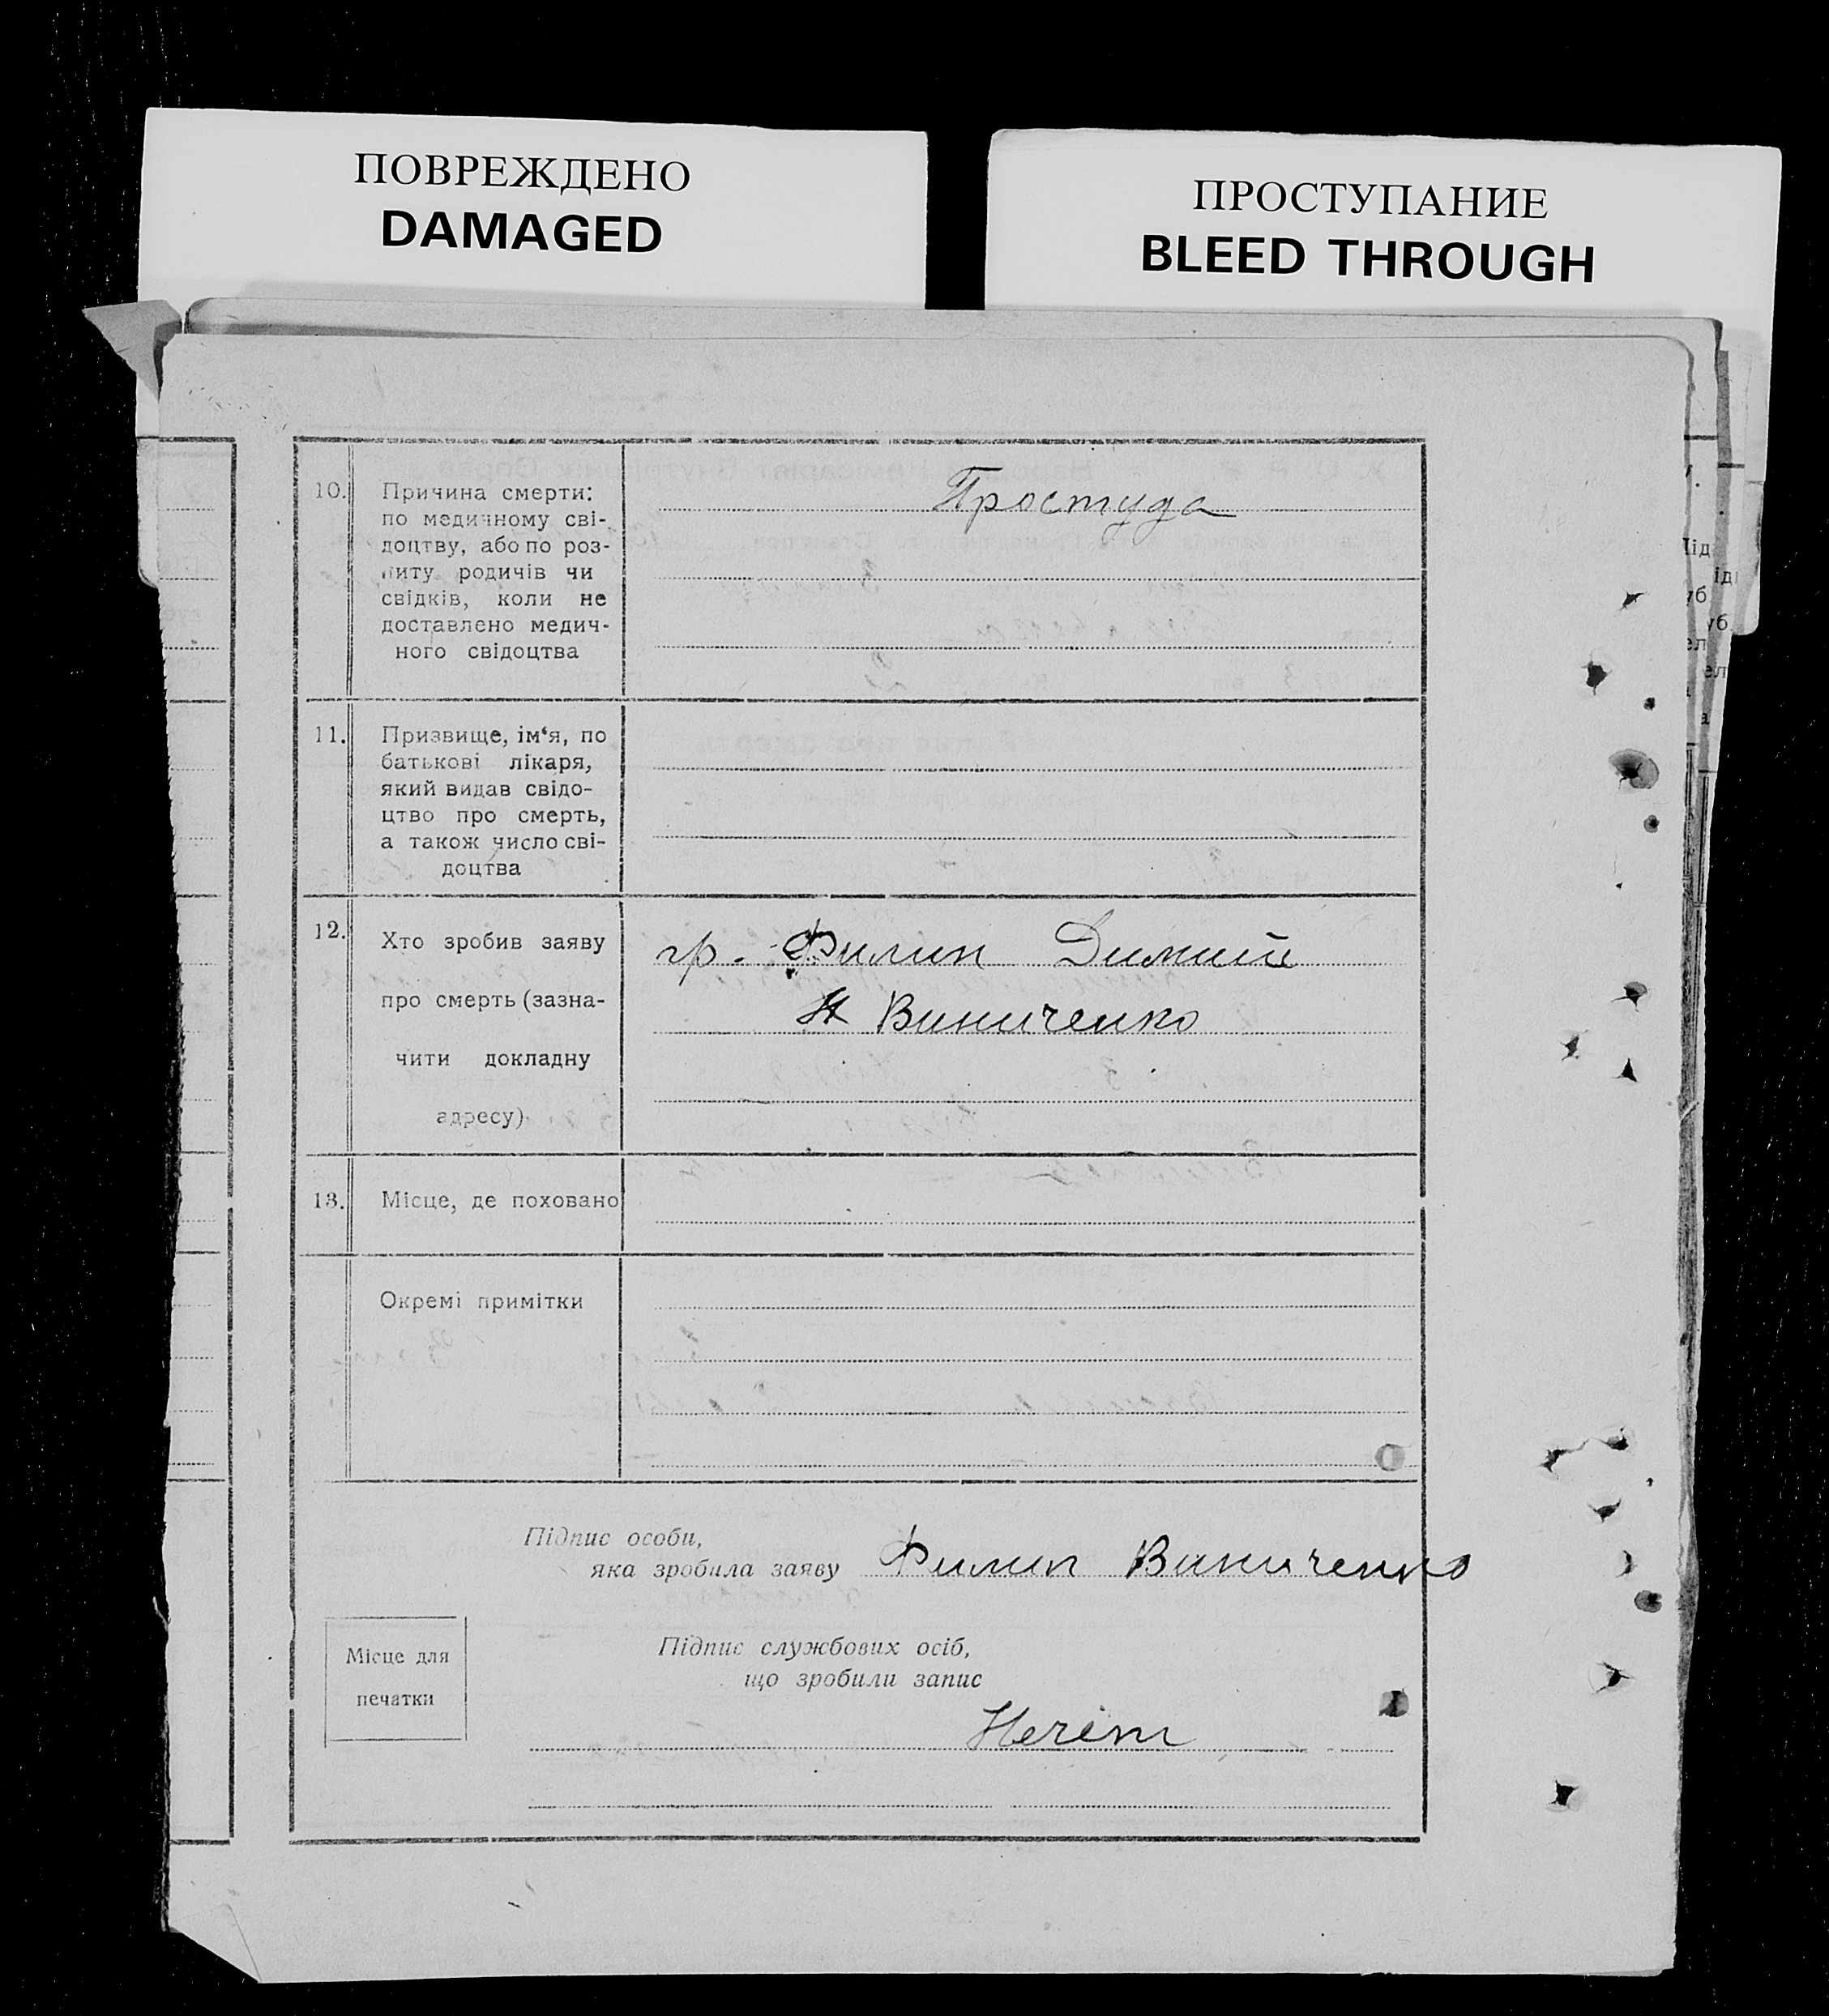 ПОВРЕЖДЕНО
DAMAGED
ПРОСТУПАНИЕ
BLEED THROUGH
10.
Причина смерти:
по медичному сві-
доцтву, або по роз-
питу родичів чи
свідків, коли не
доставлено медич-
ного свідоцтва
Простуда
11.
Призвище, ім‘я, по
батькові лікаря,
який видав свідо-
цтво про смерть,
а також число сві-
доцтва
12.
Хто зробив заяву
про смерть (зазна-
чити докладну
адресу)
гр. Филип
Виниченко
13.
Місце, де поховано
Окремі примітки
Підпис особи,
яка зробила заяву Филип Виниченко
Місце для
печатки
Підпис службових осіб,
що зробили запис